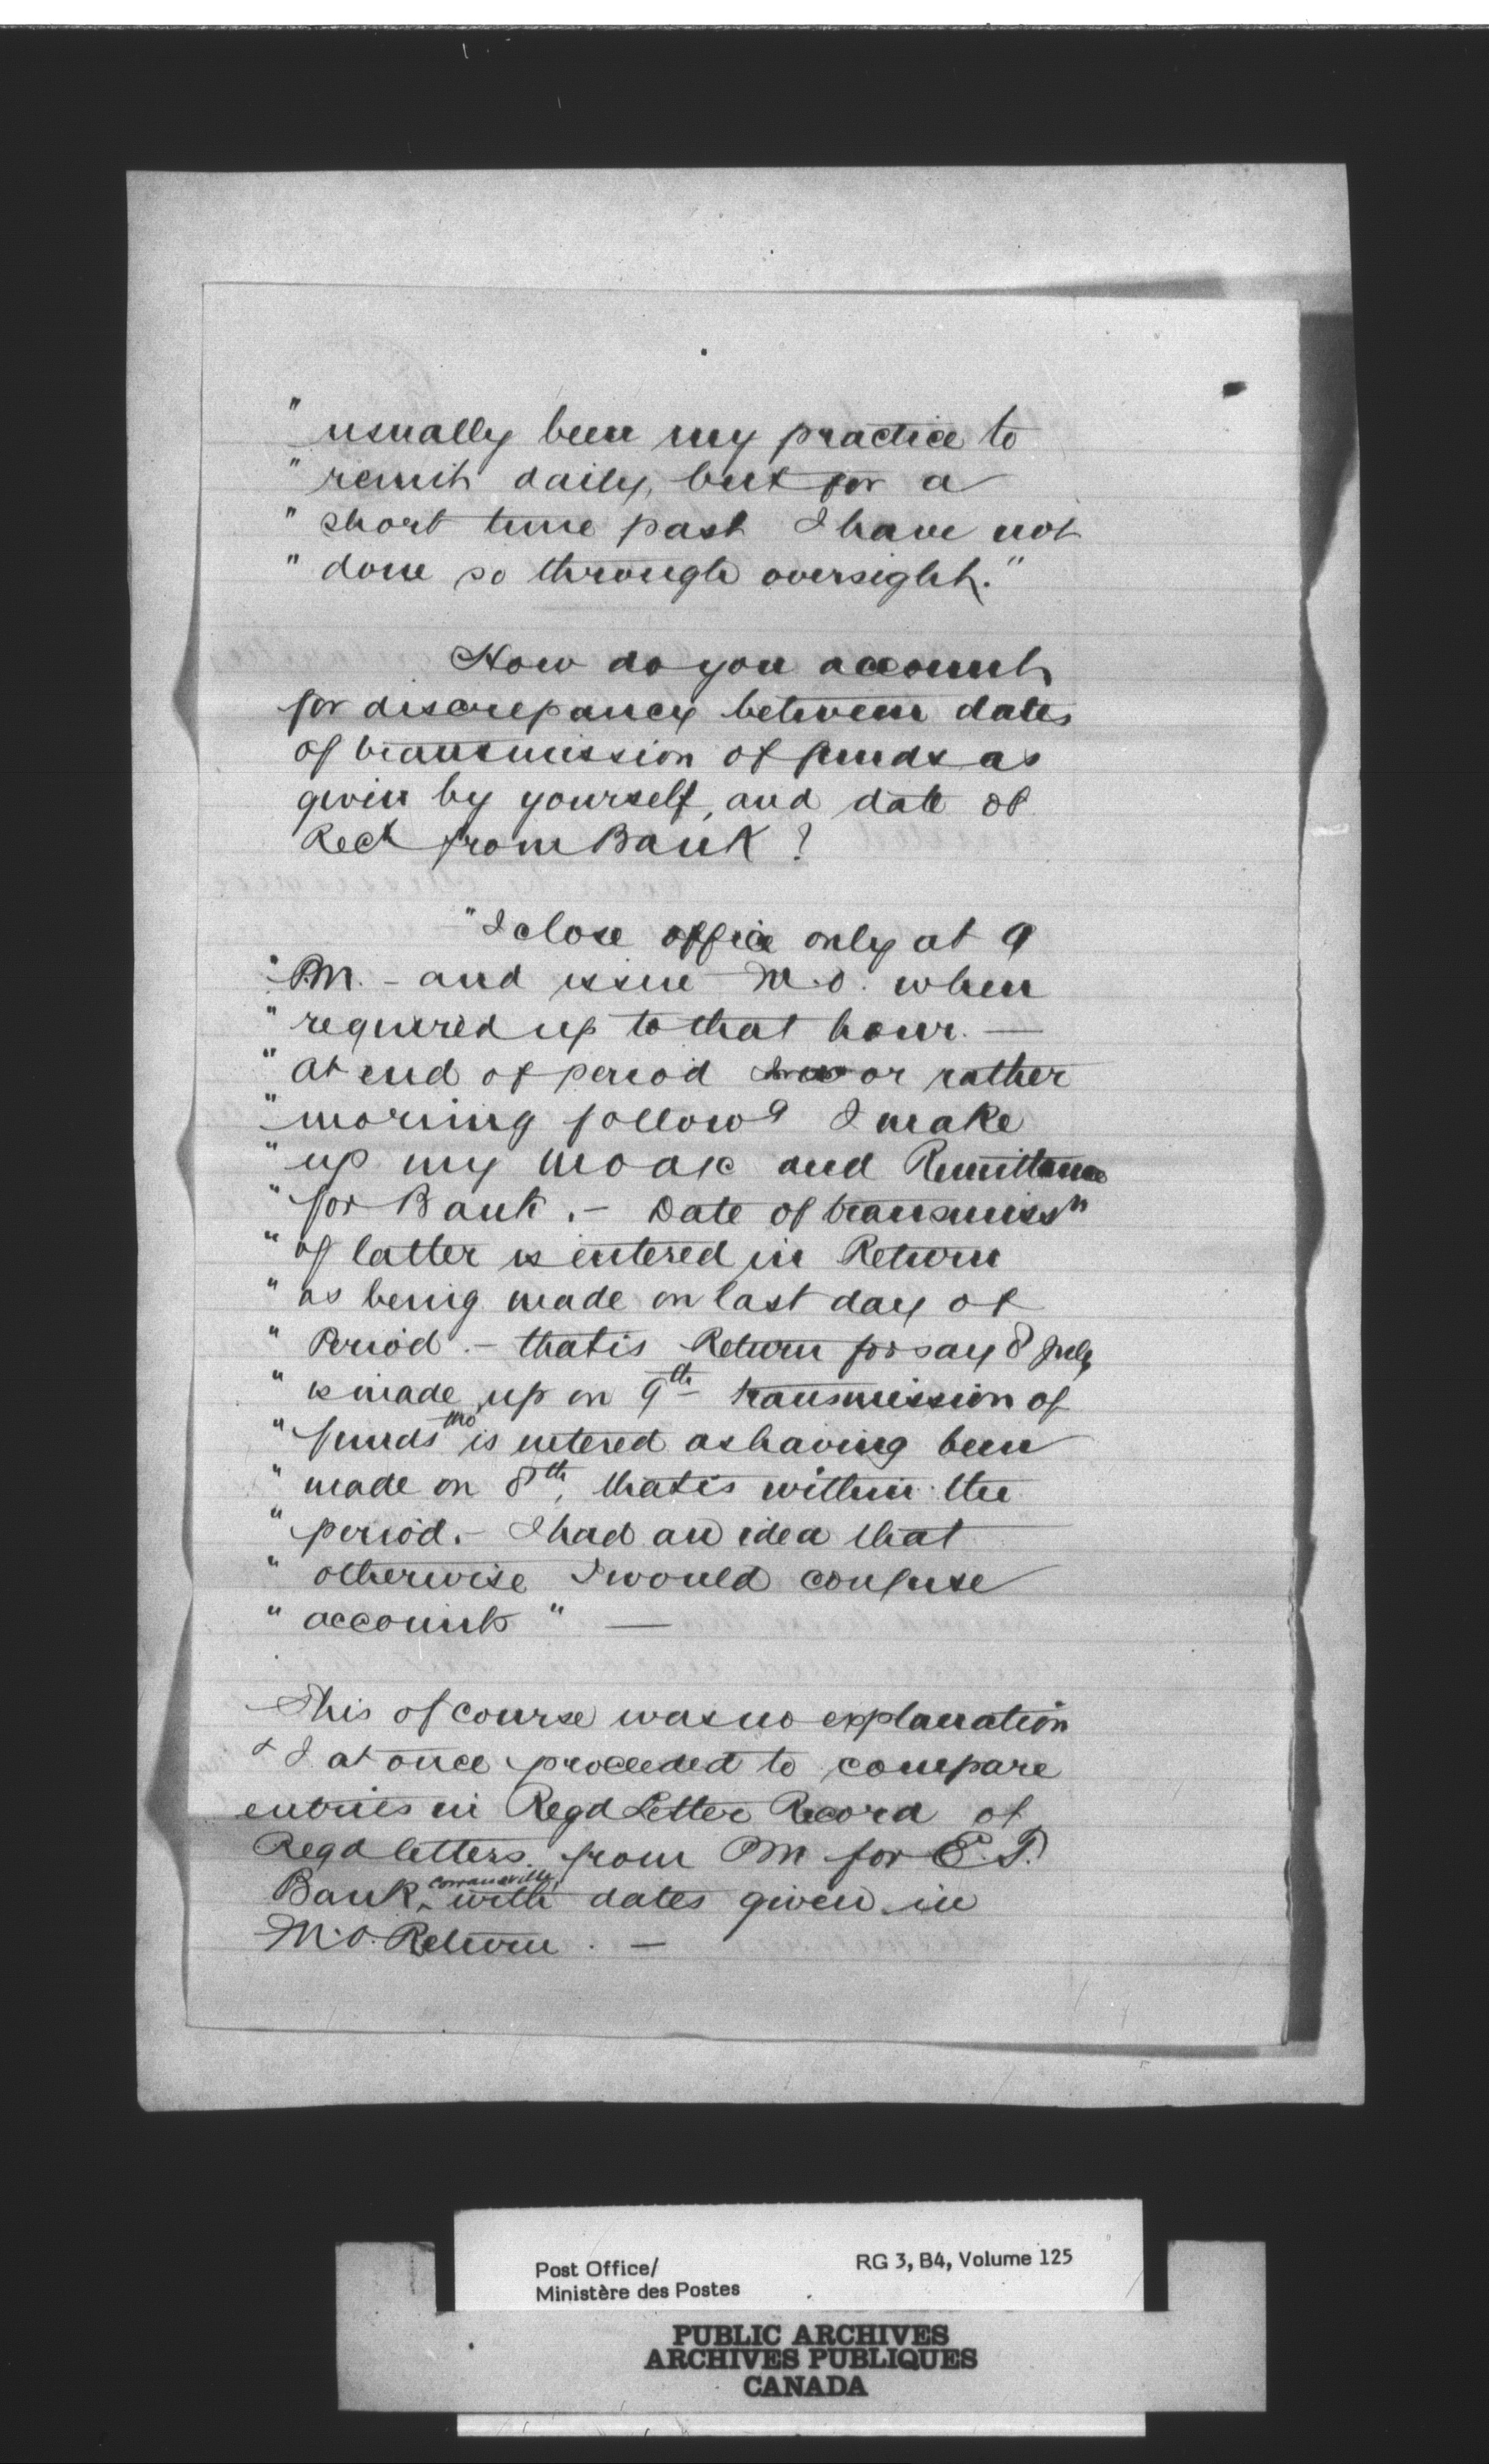 " usually been my practice to
" remit daily, but for a
" short time past I have not
" done so through oversight."
How do you account
for discrepancy between dates
of transmission of funds as
given by yourself, and date of
Rect from Bank ?
"I close office only at 9
" P.M. - and issue M.O. when
" required up to that hour. —
" at end of period or rather
" morning followg I make
" up my MOA/c and Remittance
" for Bank. - Date of transmissn
" of latter is entered in Return
" as being made on last day of
" Period. - that is Return for say 8 July
" is made up on 9th transmission of
" funds tho is entered as having been
" made on 8th, that is within the
" period. - I had an idea that
" otherwise I would confuse
" accounts " —
This of course was no explanation
& I at once proceeded to compare
entries in Regd Letter Record of
Regd letters from PM for E.T.
Bank, Cowansville, with dates given in
M.O. Return. —
Post Office/
Ministère des Postes
RG 3, B4, Volume 125
PUBLIC ARCHIVES
ARCHIVES PUBLIQUES
CANADA